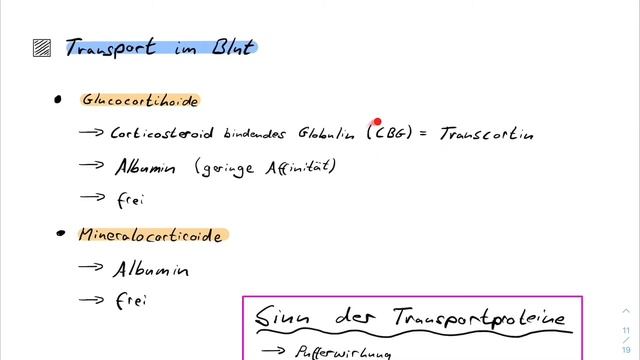 Transport im Blut
Glucocortikoide
→ Corticosteroid bindendes Globulin (CBG) = Transcortin
→ Albumin (geringe Affinität)
→ frei
Mineralocorticoide
→ Albumin
→ frei
Sinn der Transportproteine
→ Pufferwirkung
11
/
19